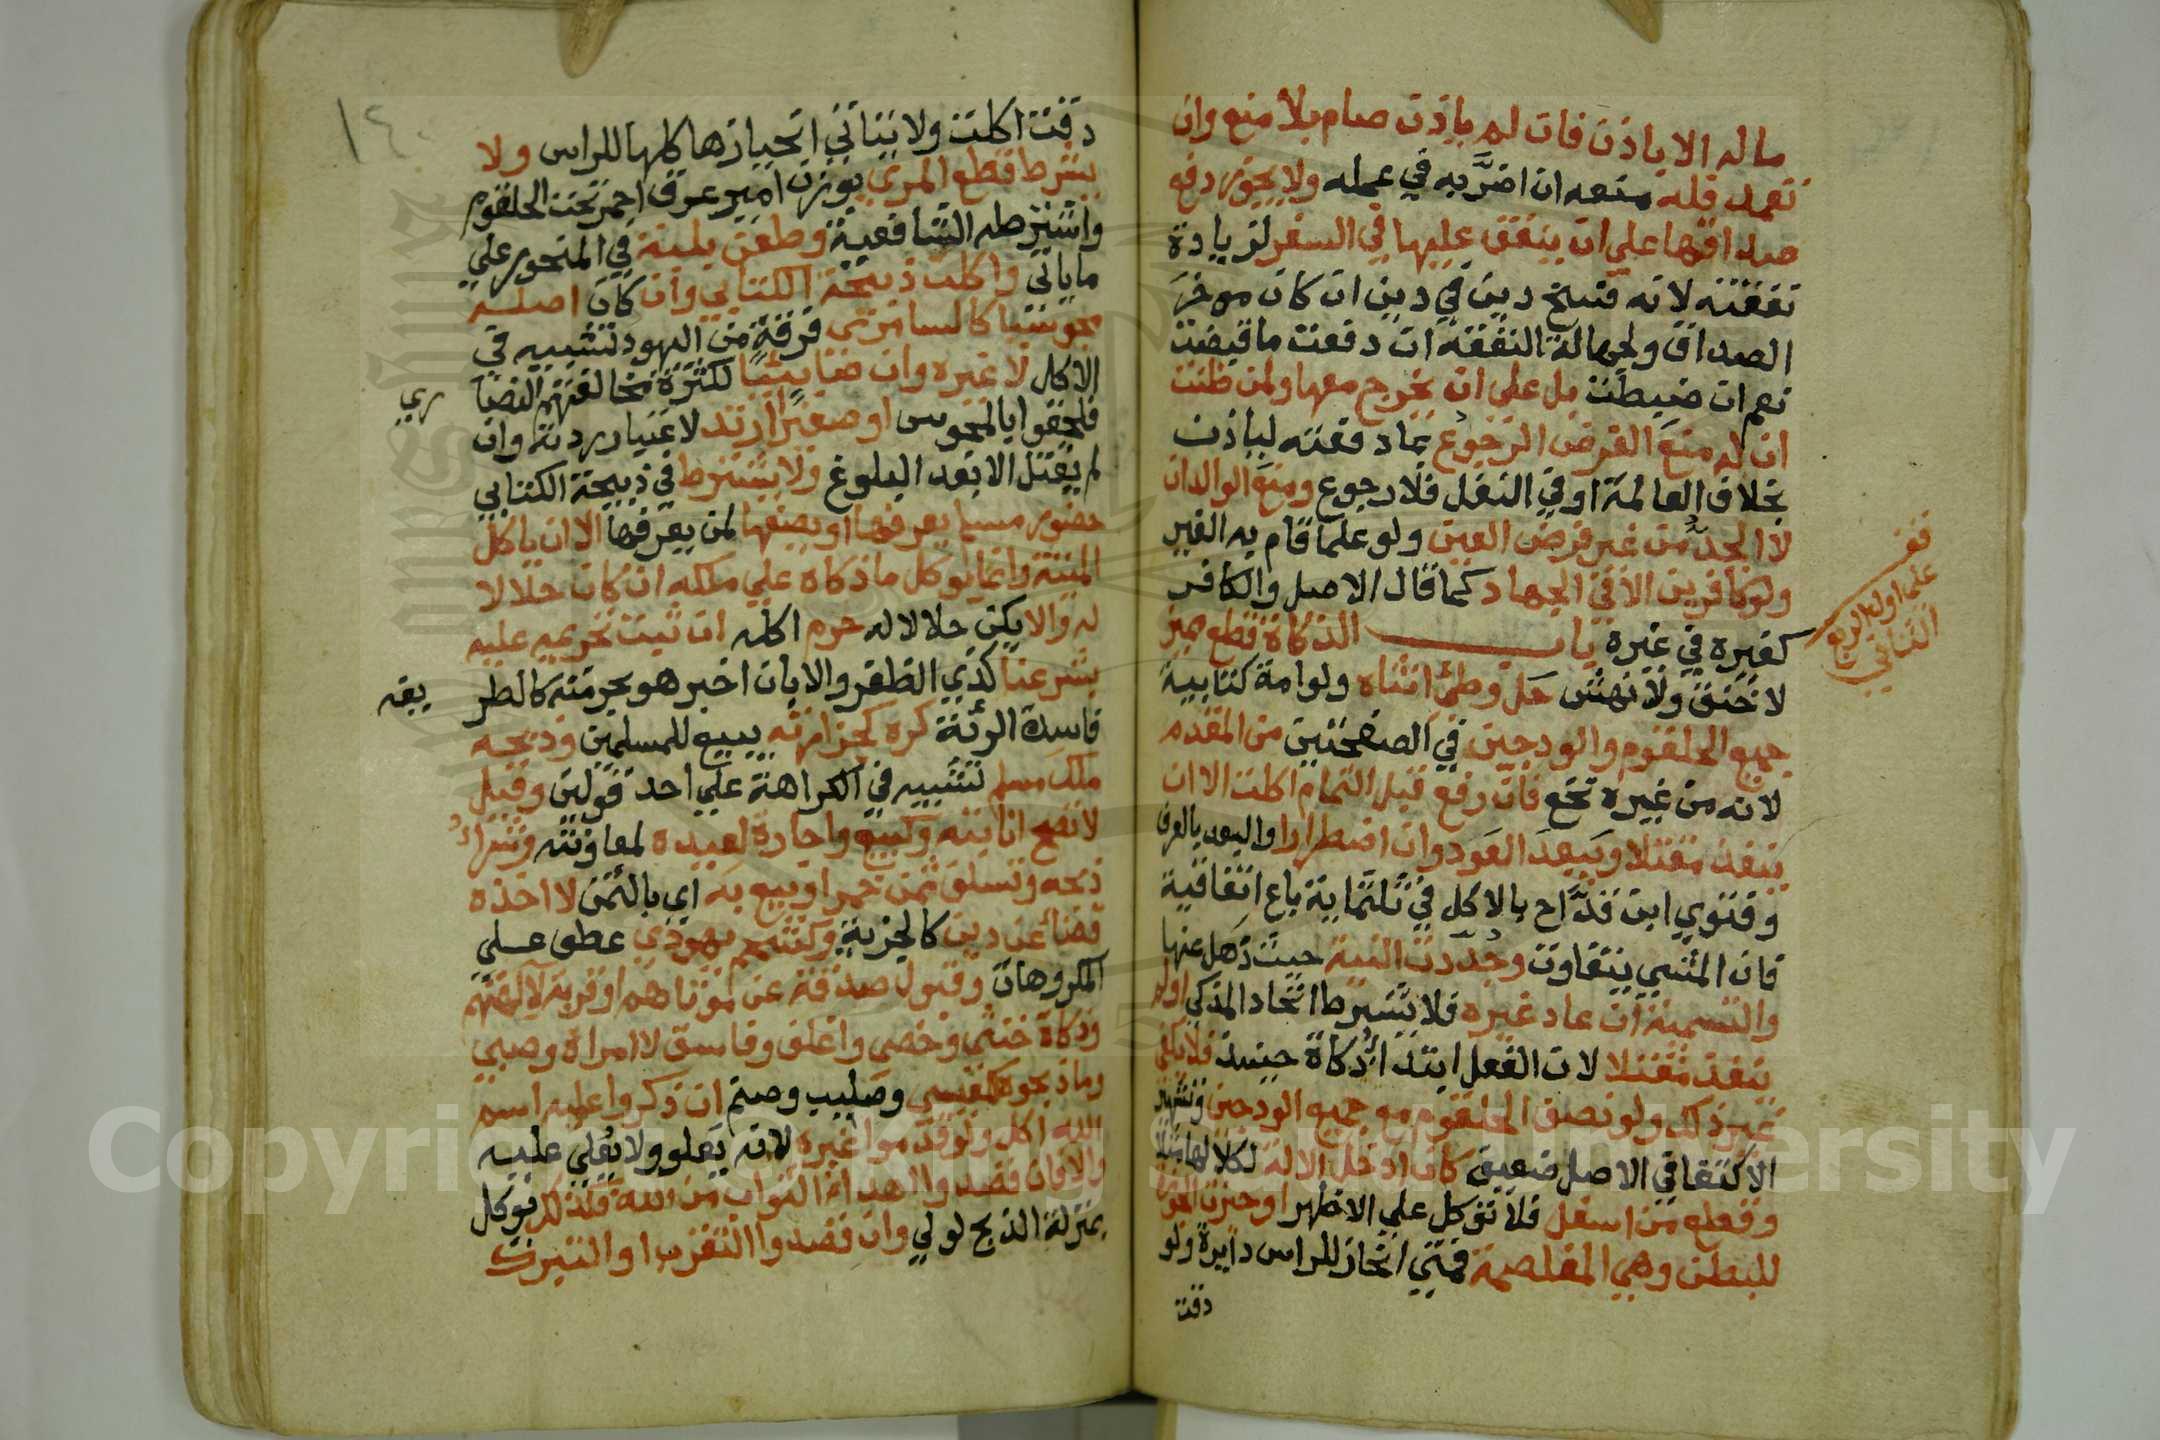 ماله الا باذن فان لم ياذن صام بلا منع وان
تعمد فله منعه ان اضر به في عمله ولا يجوز دفع
صداقها علي ان ينفق عليها في السفر لزيادة
نفقته لانه فسخ دين في دين ان كان موخر
الصداق ولجهالة النفقة ان دفعت ما قبضت
نعم ان ضبطت بل علي ان يخرج معها ولمن ظنت
ان له منع الفرض الرجوع بما دفعته لياذن
بخلاف العالمة او في النفل فلا رجوع ومنع الوالدان
لا الجد من غير فرض العين ولو علما قام به الغير
ولو كافرين الا في الجهاد كما قال الاصل والكافر
كغيره في غيره باب الذكاة قطع مميز
لا خنق ولا نهش حل وطئ انثاه ولو امة كتابية
جميع الحلقوم والودجين في الصفحتين من المقدم
لانه من غيره نخع فان رفع قبل التمام اكلت الا ان
ينفذ مقتلا ويبعد العود وان اضطرارا والبعد بالعرف
وفتوي ابن قداح بالاكل في ثلثماية باع اتفاقية
فان المشي يتفاوت وجددت النية حيث ذهل عنها
والتسمية ان عاد غيره فلا يشترط اتحاد المذكي اولم
ينفذ مقتلا لان الفعل ابتداء ذكاة حينئذ فلا يكفي
غير ذلك ولو نصف الحلقوم مع جميع الودجين وتشهير
الاكتفا في الاصل ضعيف كان ادخل الالة
وقطع من اسفل فلا توكل علي الاظهر او حيزت
للبطن وهي المغلصمة فمتي انحاز للراس دايرة ولو
دقت
نفق
علما اوله الربع
الثاني
١٤٠
دقت اكلت ولا يتاتي انحيازها كلها للراس ولا
يشترط قطع المري بوزن امير عرق احمر تحت الحلقوم
واشترطه الشافعية وطعن بلبة في المنحور علي
ما ياتي واكلت ذبيحة الكتابي وان كان اصله
مجوسيا كالسامري فرقة من اليهود تشبيه في
الاكل لا غيره وان صابيئيا لكثرة مخالفتهم النصا
ري
فلحقوا بالمجوس او صغيرا ارتد لاعتبار ردته وان
لم يقتل الا بعد البلوغ ولا يشترط في ذبيحة الكتابي
حضور مسلم يعرفها او يصفها لمن يعرفها الا ان ياكل
الميتة وانما يوكل ما ذكاه علي ملكه ان كان حلالا
له والا يكن حلالا له حرم اكله ان ثبت تحريمه عليه
بشرعنا كذي الظفر والا بان اخبر هو بحرمته كالطر
يفه
فاسدة الرئة كره كجزارته ببيع للمسلمين وذبيحه
ملك مسلم تشبيه في الكراهة علي احد قولين وقيل
لا تصح انابته وكبيع واجارة لعيده لمعاونته وشراء
ذبحه وتسلق ثمن خمر او بيع به اي بالثمن لا اخذه
قضا عن دين كالجزية وكشحم يهودي عطف علي
المكروهات وقبول صدقة عن موتاهم او قربة لالهتهم
وذكاة خنثي وخصي واغلف وفاسق لا امراة وصبي
وما ذبحوه لعيسي وصليب وصنم ان ذكروا عليه اسم
الله اكل ولو قدموا غيره لانه يعلو ولا يعلي عليه
والا فان قصدوا اهداء الثواب من الله فكذلك يوكل
بمنزلة الذبح لولي وان قصدوا التقرب او التبرك
Copyright © King Saud University